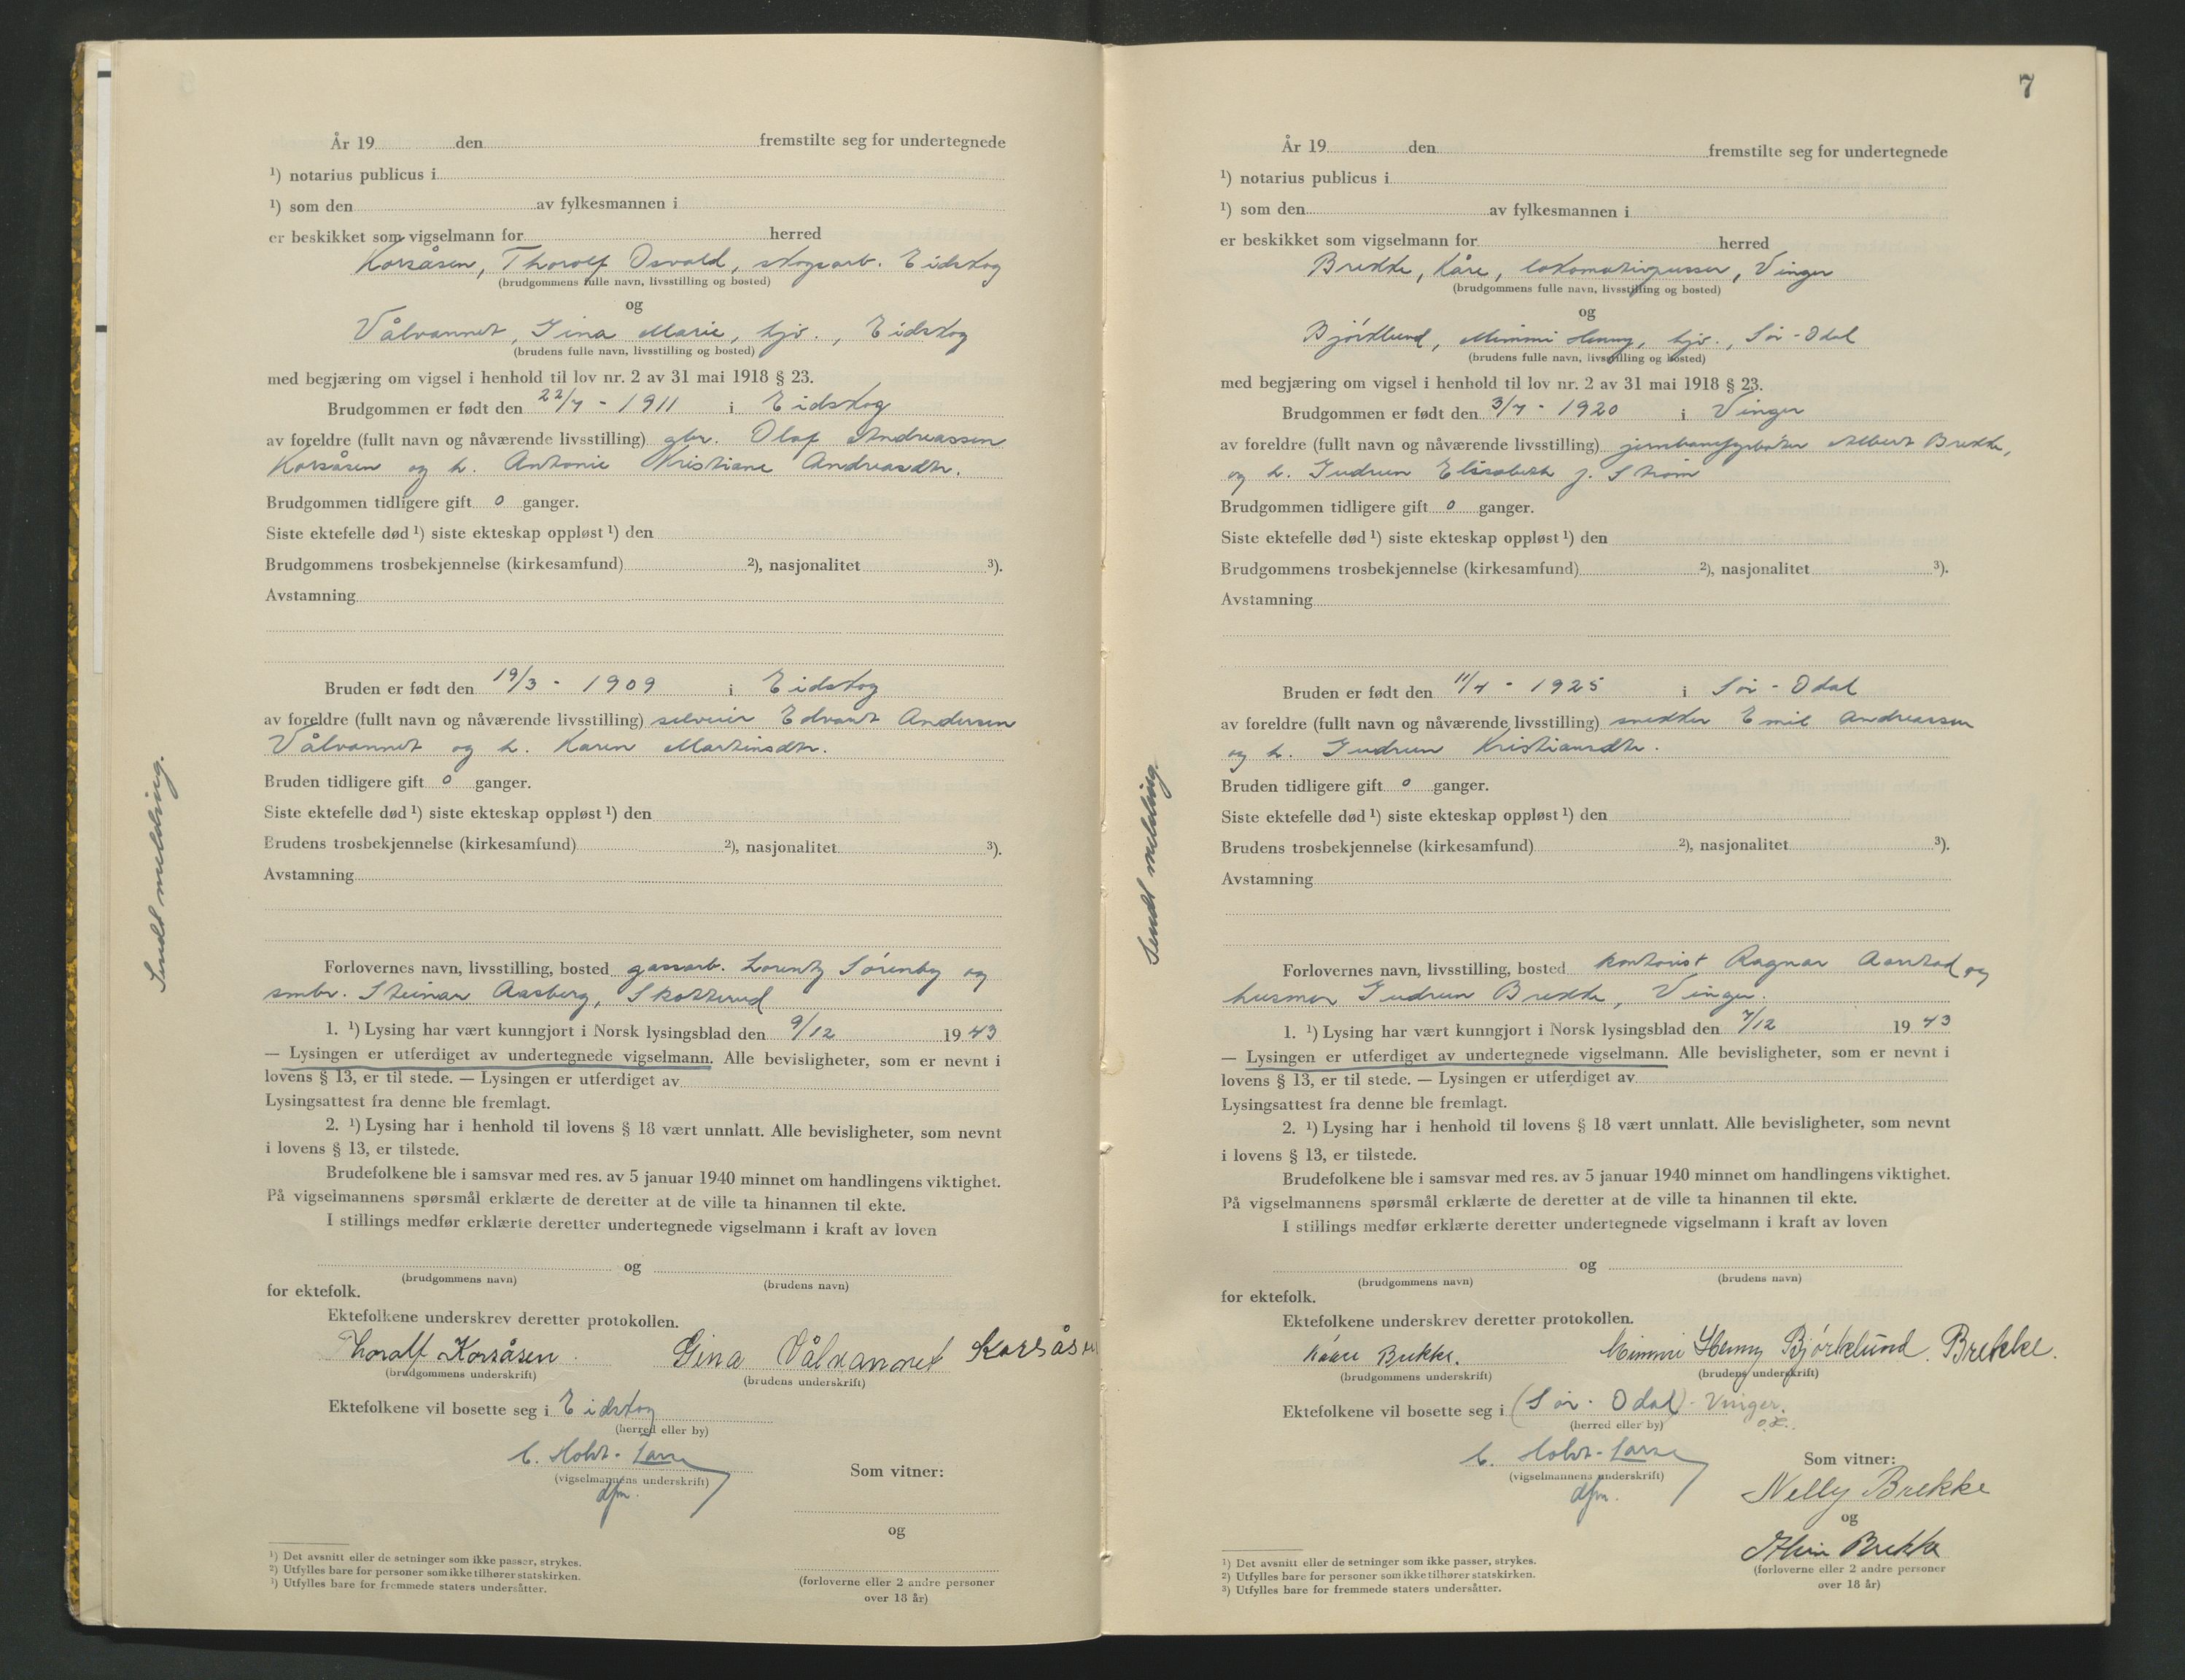 År 19 den fremstilte seg for undertegnede
¹) notarius publicus i
¹) som den av fylkesmannen i
er beskikket som vigselmann for herred
Korsåsen, Thorolf Osvald, skogsarb. Eidskog
(brudgommens fulle navn, livsstilling og bosted)
og
Vålvannet, Gina Marie, hjv., Eidskog
(brudens fulle navn, livsstilling og bosted)
med begjæring om vigsel i henhold til lov nr. 2 av 31 mai 1918 § 23.
Brudgommen er født den 22/7 - 1911 i Eidskog
av foreldre (fullt navn og nåværende livsstilling) gbr. Olaf Andreassen
Korsåsen og h. Antonie Kristiane Andreasdtr.
Brudgommen tidligere gift 0 ganger.
Siste ektefelle død ¹) siste ekteskap oppløst ¹) den
Brudgommens trosbekjennelse (kirkesamfund) ²), nasjonalitet ³).
Avstamning
Bruden er født den 19/3 - 1909 i Eidskog
av foreldre (fullt navn og nåværende livsstilling) selveier Edvart Andersen
Vålvannet og h. Karen Martinsdtr.
Bruden tidligere gift 0 ganger.
Siste ektefelle død ¹) siste ekteskap oppløst ¹) den
Brudens trosbekjennelse (kirkesamfund) ²), nasjonalitet ³).
Avstamning
Sendt melding.
Forlovernes navn, livsstilling, bosted gassarb. Lorentz Sörenby og
smbr. Steinar Aasberg, Skotterud
1. ¹) Lysing har vært kunngjort i Norsk lysingsblad den 9/12 1943
— Lysingen er utferdiget av undertegnede vigselmann. Alle bevisligheter, som er nevnt i
lovens § 13, er til stede. — Lysingen er utferdiget av
Lysingsattest fra denne ble fremlagt.
2. ¹) Lysing har i henhold til lovens § 18 vært unnlatt. Alle bevisligheter, som nevnt
i lovens § 13, er tilstede.
Brudefolkene ble i samsvar med res. av 5 januar 1940 minnet om handlingens viktighet.
På vigselmannens spørsmål erklærte de deretter at de ville ta hinannen til ekte.
I stillings medfør erklærte deretter undertegnede vigselmann i kraft av loven
og
(brudgommens navn) (brudens navn)
for ektefolk.
Ektefolkene underskrev deretter protokollen.
Thoralf Korsåsen. Gina Vålvannet Korsåsen
(brudgommens underskrift) (brudens underskrift)
Ektefolkene vil bosette seg i Eidskog
(herred eller by)
C. Holst-Larse
(vigselmannens underskrift)
dfm.
Som vitner:
og
(forloverne eller 2 andre personer
over 18 år)
¹) Det avsnitt eller de setninger som ikke passer, strykes.
²) Utfylles bare for personer som ikke tilhører statskirken.
³) Utfylles bare for fremmede staters undersåtter.
7
År 19 den fremstilte seg for undertegnede
¹) notarius publicus i
¹) som den av fylkesmannen i
er beskikket som vigselmann for herred
Brekke, Kåre, lokomotivpusser, Vinger
(brudgommens fulle navn, livsstilling og bosted)
og
Björklund, Mimmi Henny, hjv., Sör-Odal
(brudens fulle navn, livsstilling og bosted)
med begjæring om vigsel i henhold til lov nr. 2 av 31 mai 1918 § 23.
Brudgommen er født den 3/7 - 1920 i Vinger
av foreldre (fullt navn og nåværende livsstilling) jernbanefyrböter Albert Brekke,
og h. Gudrun Elisabeth f. Ström
Brudgommen tidligere gift 0 ganger.
Siste ektefelle død ¹) siste ekteskap oppløst ¹) den
Brudgommens trosbekjennelse (kirkesamfund) ²), nasjonalitet ³).
Avstamning
Bruden er født den 11/7 - 1925 i Sör-Odal
av foreldre (fullt navn og nåværende livsstilling) snekker Emil Andreassen
og h. Gudrun Kristiansdtr.
Bruden tidligere gift 0 ganger.
Siste ektefelle død ¹) siste ekteskap oppløst ¹) den
Brudens trosbekjennelse (kirkesamfund) ²), nasjonalitet ³).
Avstamning
Sendt melding.
Forlovernes navn, livsstilling, bosted kontorist Ragnar og
husmor Gudrun Brekke, Vinger.
1. ¹) Lysing har vært kunngjort i Norsk lysingsblad den 7/12 1943
— Lysingen er utferdiget av undertegnede vigselmann. Alle bevisligheter, som er nevnt i
lovens § 13, er til stede. — Lysingen er utferdiget av
Lysingsattest fra denne ble fremlagt.
2. ¹) Lysing har i henhold til lovens § 18 vært unnlatt. Alle bevisligheter, som nevnt
i lovens § 13, er tilstede.
Brudefolkene ble i samsvar med res. av 5 januar 1940 minnet om handlingens viktighet.
På vigselmannens spørsmål erklærte de deretter at de ville ta hinannen til ekte.
I stillings medfør erklærte deretter undertegnede vigselmann i kraft av loven
og
(brudgommens navn) (brudens navn)
for ektefolk.
Ektefolkene underskrev deretter protokollen.
Kåre Brekke. Mimmi Henny Björklund. Brekke.
(brudgommens underskrift) (brudens underskrift)
Ektefolkene vil bosette seg i (Sör-Odal) - Vinger.
(herred eller by)
C. Holst-Larse
(vigselmannens underskrift)
dfm.
Som vitner:
Nelly Brekke
og
Brekke
(forloverne eller 2 andre personer
over 18 år)
¹) Det avsnitt eller de setninger som ikke passer, strykes.
²) Utfylles bare for personer som ikke tilhører statskirken.
³) Utfylles bare for fremmede staters undersåtter.